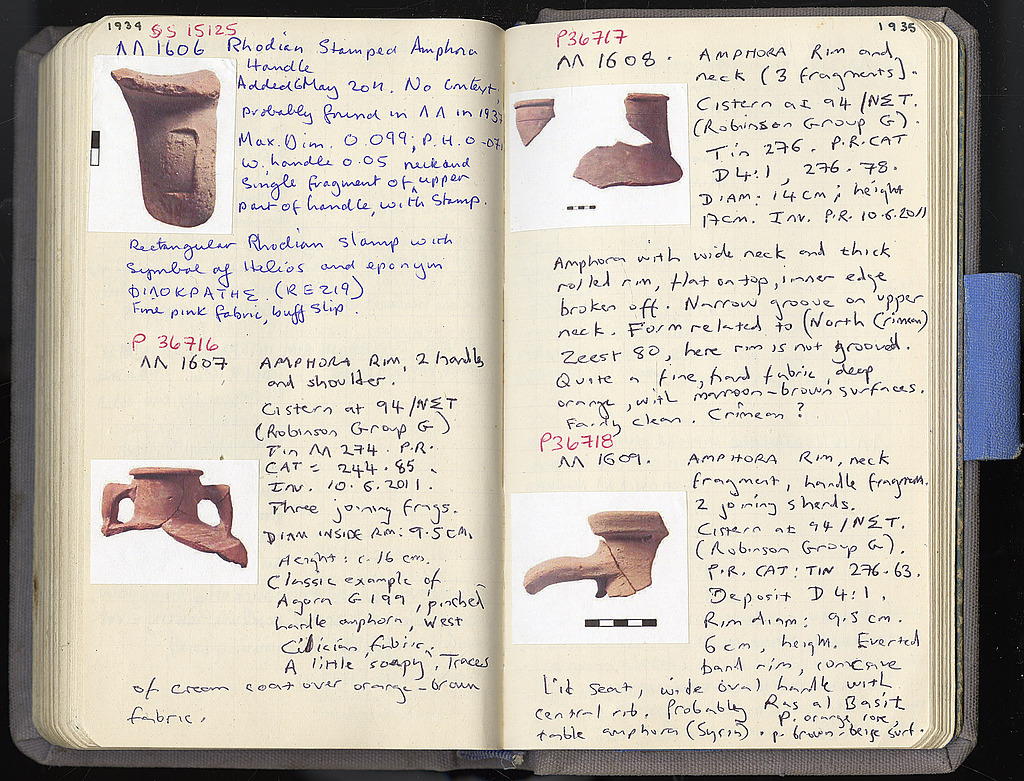 1934
SS 15125
ΛΛ 1606 Rhodian Stamped Amphora
Handle
Added 6 May 2011. No Context,
probably found in ΛΛ in 1937
Max. Dim. 0.099; P.H. 0.071
w. handle 0.05 neck and
Single fragment of upper
part of handle, with Stamp.
Rectangular Rhodian stamp with
symbol of Helios and eponym
ΦΙΛΟΚΡΑΤΗΣ. (RE219)
Fine pink fabric, buff slip.
P 36716
ΛΛ 1607 AMPHORA RIM, 2 handles
and shoulder.
Cistern at 94/ΝΣΤ
(Robinson Group G)
Tin ΛΛ 274. P.R.
CAT = 244.85.
Inv. 10.6.2011.
Three joining frags.
DIAM INSIDE RM: 9.5 cm.
Height: c. 16 cm.
Classic example of
Agora G 199, pinched
handle amphora, West
Cilician fabric.
A little soapy. Traces
of cream coat over orange-brown
fabric.
1935
P36717
ΛΛ 1608. AMPHORA Rim and
neck (3 fragments).
Cistern at 94/ΝΣΤ.
(Robinson Group G).
Tin 276. P.R. CAT
D4:1, 276.78.
DIAM: 14 cm; height
17cm. Inv. P.R. 10.6.2011
Amphora with wide neck and thick
rolled rim, flat on top, inner edge
broken off. Narrow groove on upper
neck. Form related to (North Crimean)
Zeest 80, here rim is not grooved.
Quite a fine, hard fabric, deep
orange, with maroon-brown surfaces.
Fairly clean. Crimean?
P36718
ΛΛ 1609. AMPHORA Rim, neck
fragment, handle fragment.
2 joining sherds.
Cistern at 94/ΝΣΤ.
(Robinson Group G).
P.R. CAT: TIN 276.63.
Deposit D4:1.
Rim diam: 9.5 cm.
6 cm, height. Everted
band rim, concave
lid seat, wide oval handle with
central rib. Probably Ras al Basit
table amphora (Syria). P. orange core,
p. brown-beige surf.